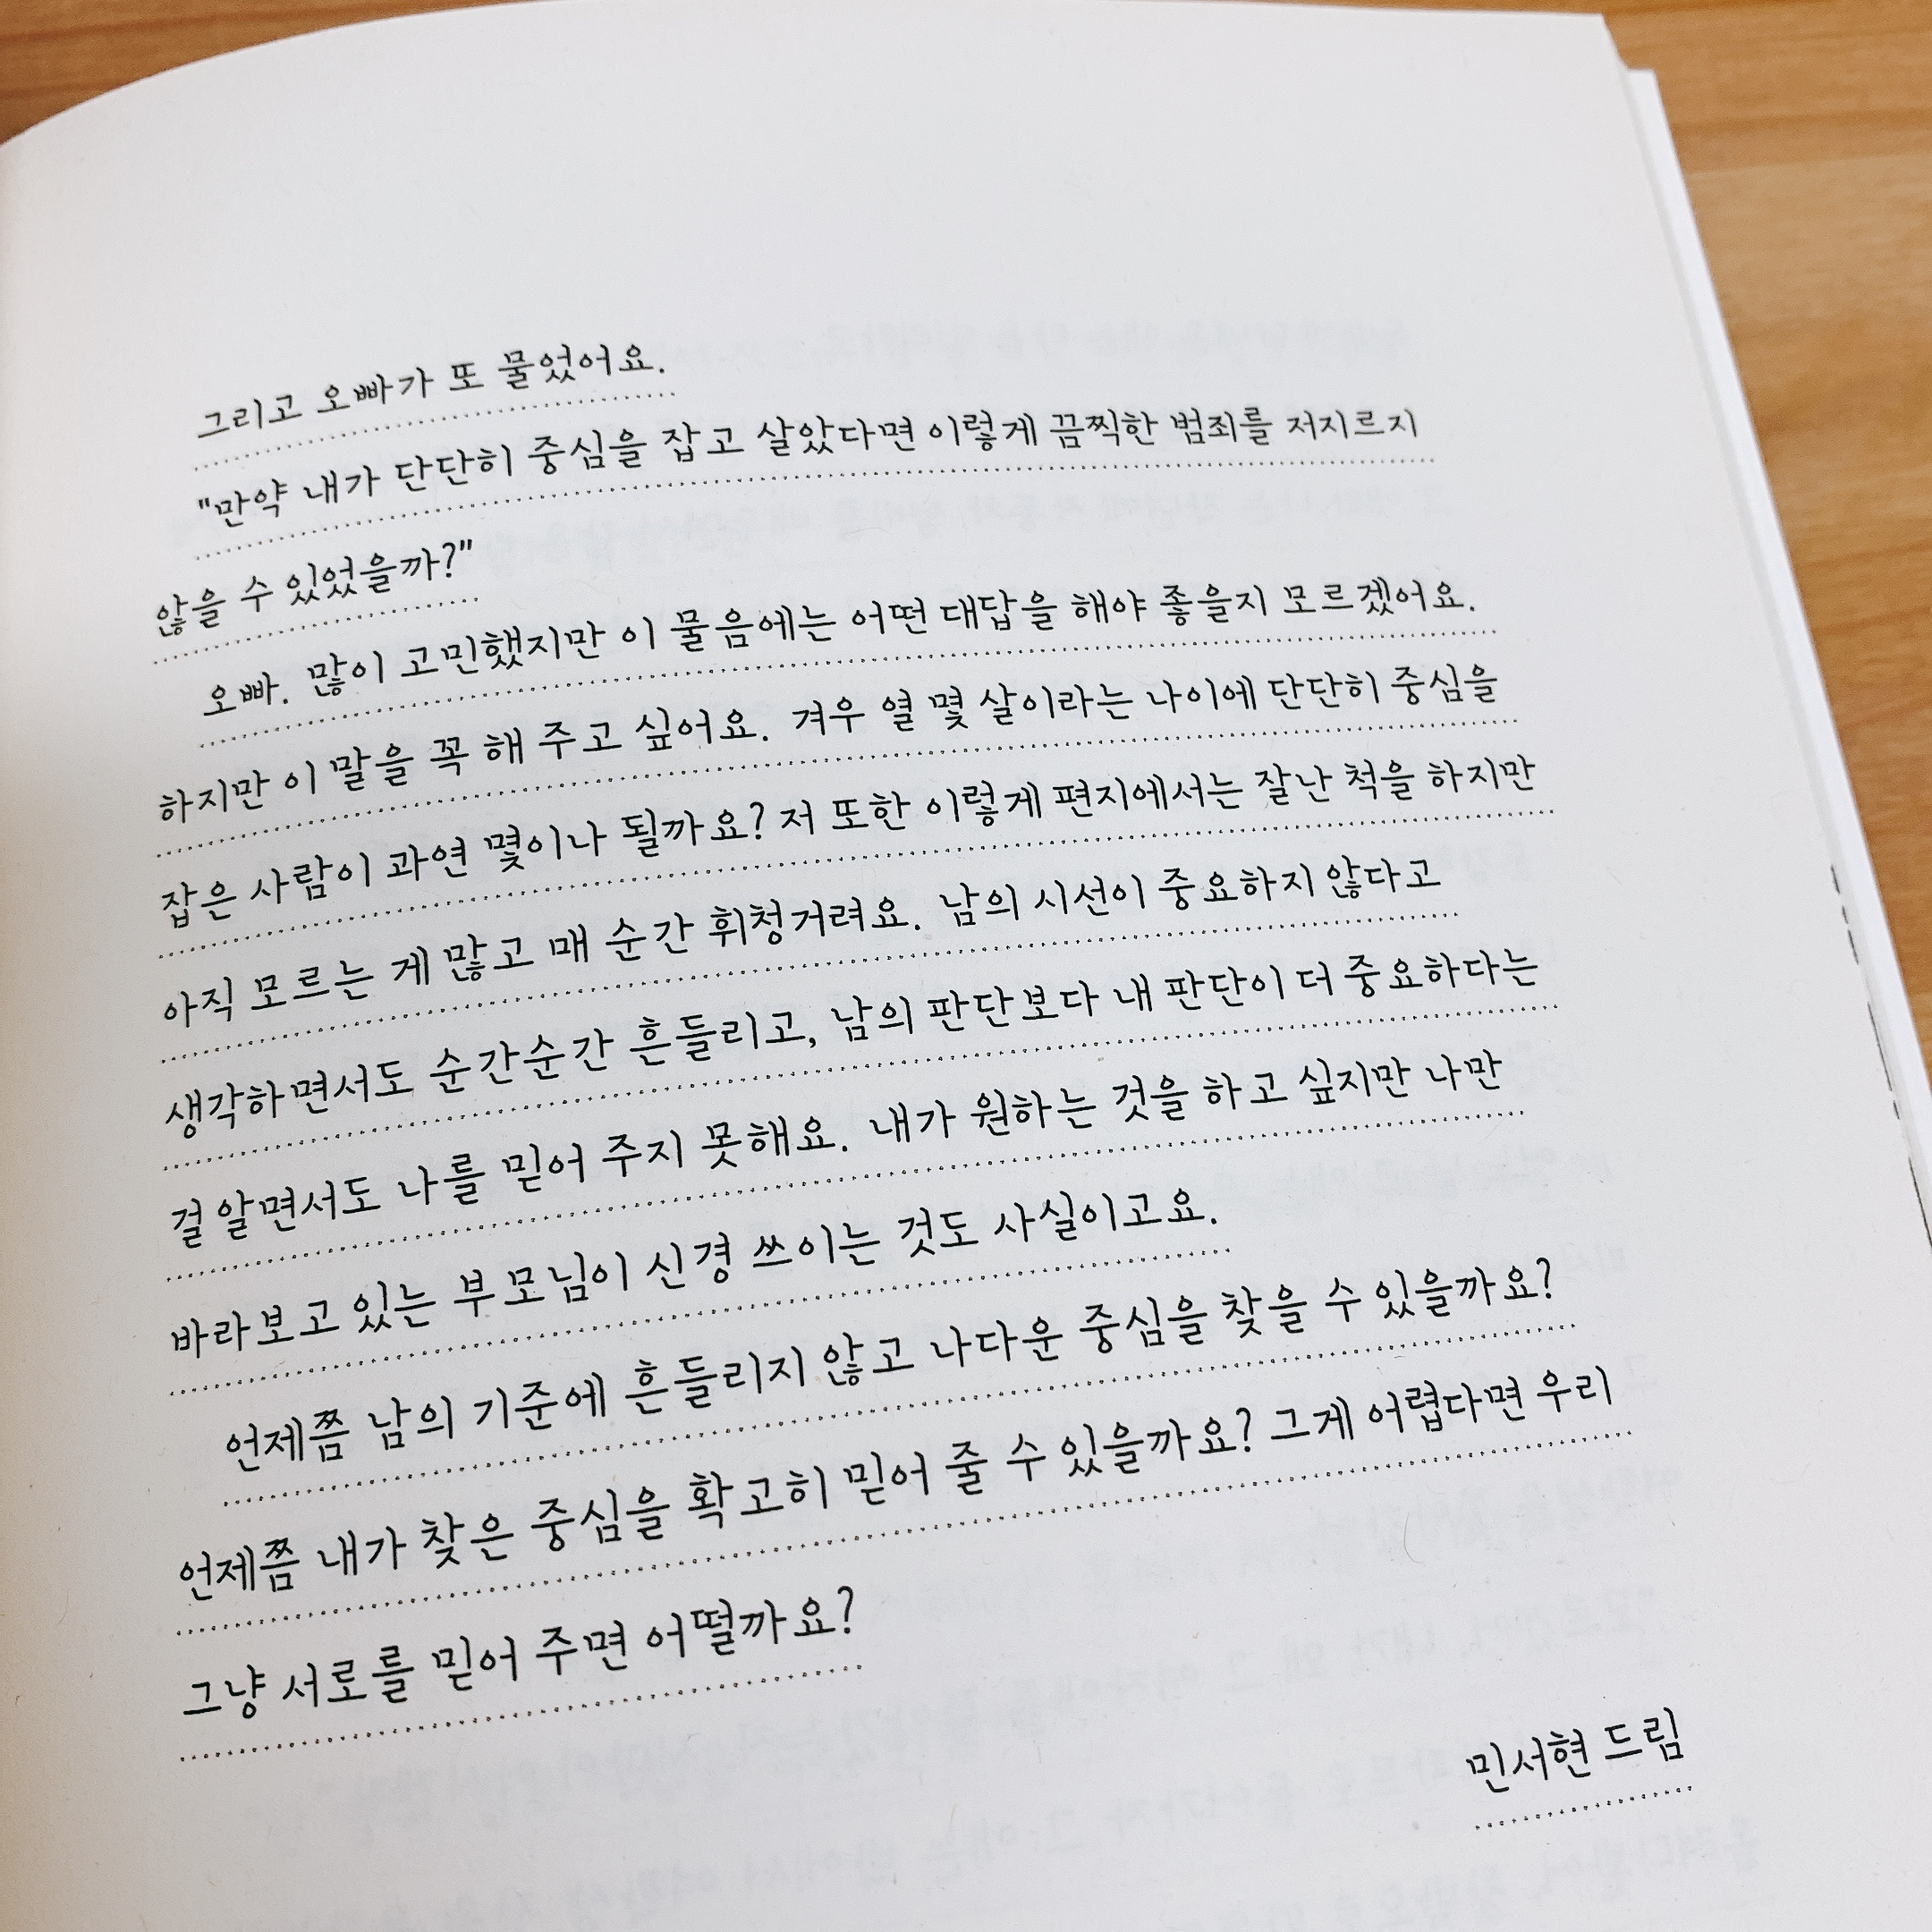 그리고 오빠가 또 물었어요.
"만약 내가 단단히 중심을 잡고 살았다면 이렇게 끔찍한 범죄를 저지르지
않을 수 있었을까?"
오빠. 많이 고민했지만 이 물음에는 어떤 대답을 해야 좋을지 모르겠어요.
하지만 이 말을 꼭 해 주고 싶어요. 겨우 열 몇 살이라는 나이에 단단히 중심을
잡은 사람이 과연 몇이나 될까요? 저 또한 이렇게 편지에서는 잘난 척을 하지만
아직 모르는 게 많고 매 순간 휘청거려요. 남의 시선이 중요하지 않다고
생각하면서도 순간순간 흔들리고, 남의 판단보다 내 판단이 더 중요하다는
걸 알면서도 나를 믿어 주지 못해요. 내가 원하는 것을 하고 싶지만 나만
바라보고 있는 부모님이 신경 쓰이는 것도 사실이고요.
언제쯤 남의 기준에 흔들리지 않고 나다운 중심을 찾을 수 있을까요?
언제쯤 내가 찾은 중심을 확고히 믿어 줄 수 있을까요? 그게 어렵다면 우리
그냥 서로를 믿어 주면 어떨까요?
민서현 드림